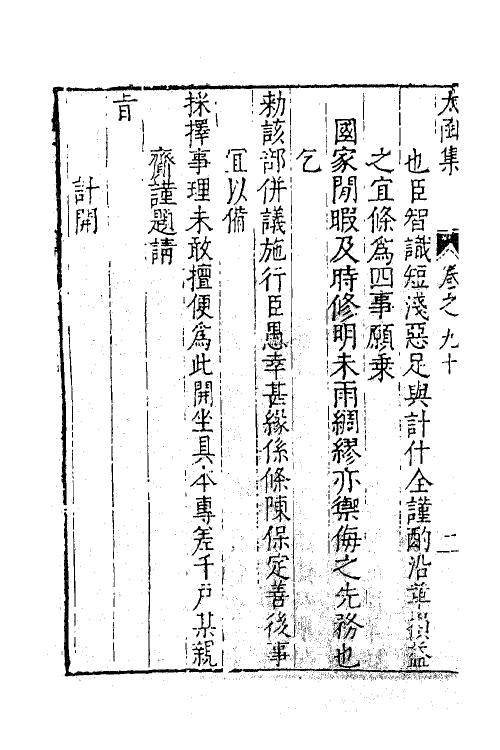 太函集
卷之九十
二
也臣智識短淺惡足與計什全謹酌沿革損益
之宜條爲四事願乘
國家閒暇及時修明未雨綢繆亦禦侮之先務也
乞
勑該部併議施行臣愚幸甚緣係條陳保定善後事
宜以備
採擇事理未敢擅便爲此開坐具本專差千戶某親
齎謹題請
旨
計開